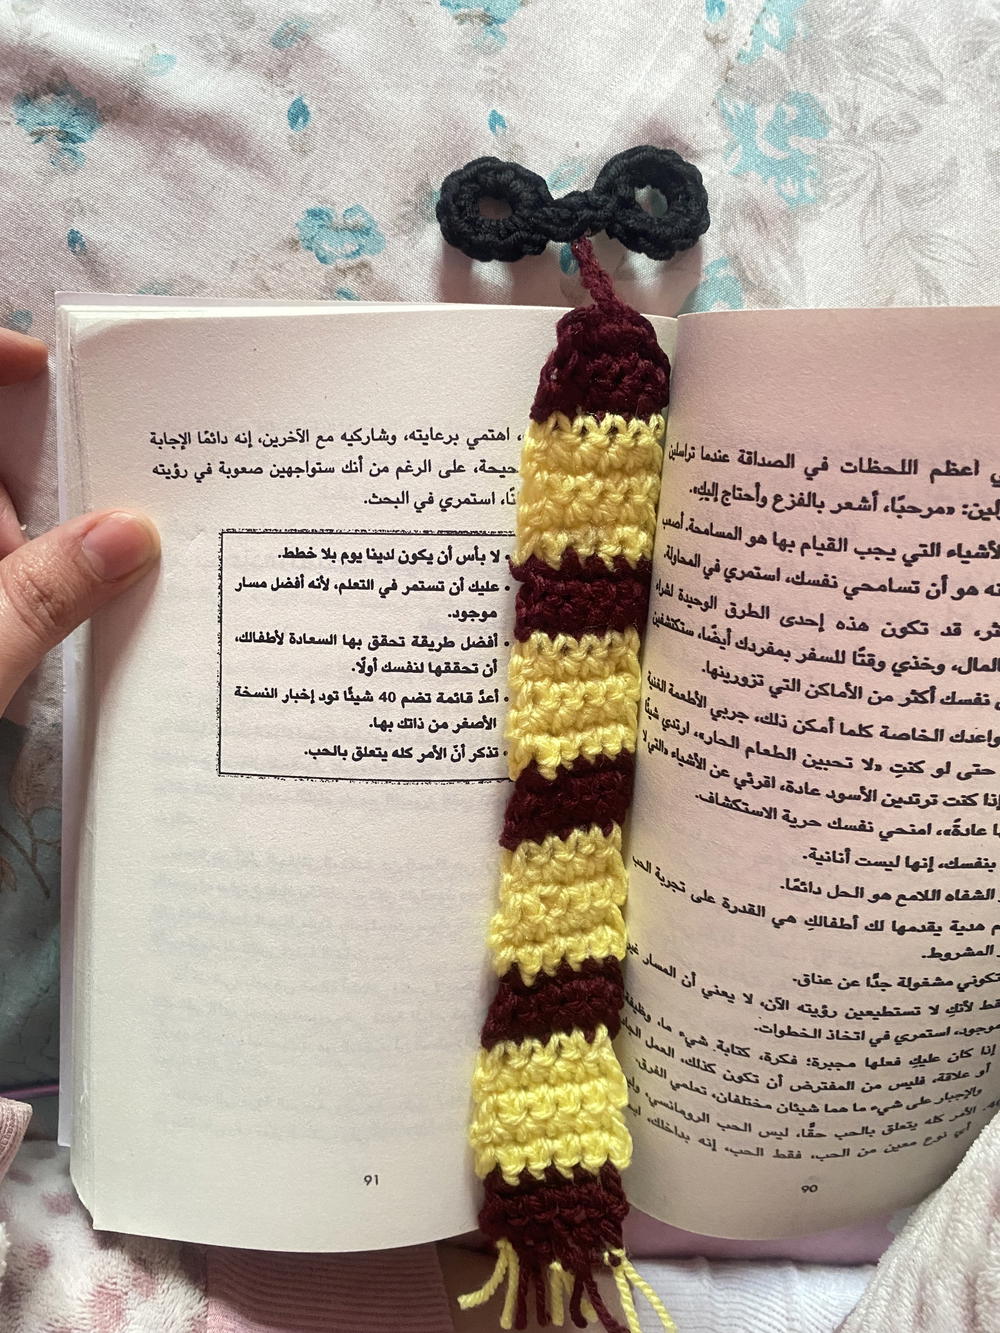 أعظم اللحظات في الصداقة عندما تراسلين
«مرحبًا، أشعر بالفزع وأحتاج إليكِ».
الأشياء التي يجب القيام بها هو المسامحة. أصعب
هو أن تسامحي نفسك، استمري في المحاولة.
قد تكون هذه إحدى الطرق الوحيدة لشراء
المال، وخذي وقتًا للسفر بمفردك أيضًا، ستكتشفين
نفسك أكثر من الأماكن التي تزورينها.
الخاصة كلما أمكن ذلك، جربي الأطعمة الغنية
حتى لو كنتِ «لا تحبين الطعام الحار»، ارتدي شيئًا
إذا كنت ترتدين الأسود عادة، اقرئي عن الأشياء «التي لا
عادةً»، امنحي نفسك حرية الاستكشاف.
بنفسك، إنها ليست أنانية.
الشفاه اللامع هو الحل دائمًا.
هدية يقدمها لك أطفالكِ هي القدرة على تجربة الحب
المشروط.
تكوني مشغولة جدًّا عن عناق.
لأنكِ لا تستطيعين رؤيته الآن، لا يعني أن المسار غير
موجود، استمري في اتخاذ الخطوات.
إذا كان عليكِ فعلها مجبرة؛ فكرة، كتابة شيء ما، وظيفة
أو علاقة، فليس من المفترض أن تكون كذلك، العمل
والإجبار على شيء ما هما شيئان مختلفان، تعلمي الفرق.
الأمر كله يتعلق بالحب حقًّا، ليس الحب الرومانسي،
أي نوع معين من الحب، فقط الحب، إنه بداخلك،
90
اهتمي برعايته، وشاركيه مع الآخرين، إنه دائمًا الإجابة
على الرغم من أنك ستواجهين صعوبة في رؤيته
استمري في البحث.
• لا بأس أن يكون لدينا يوم بلا خطط.
• عليك أن تستمر في التعلم، لأنه أفضل مسار
موجود.
• أفضل طريقة تحقق بها السعادة لأطفالك،
أن تحققها لنفسك أولًا.
• أعدَّ قائمة تضم 40 شيئًا تود إخبار النسخة
الأصغر من ذاتك بها.
• تذكر أنّ الأمر كله يتعلق بالحب.
91